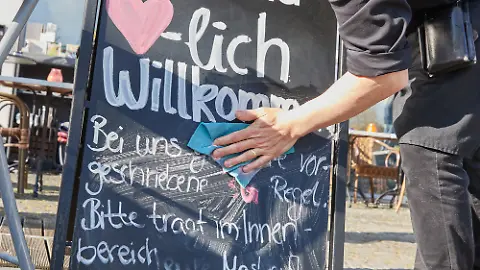 -lich
Willkomm
Bei uns
vor-
geschriebene
Regel.
Bitte tragt im Innen-
bereich